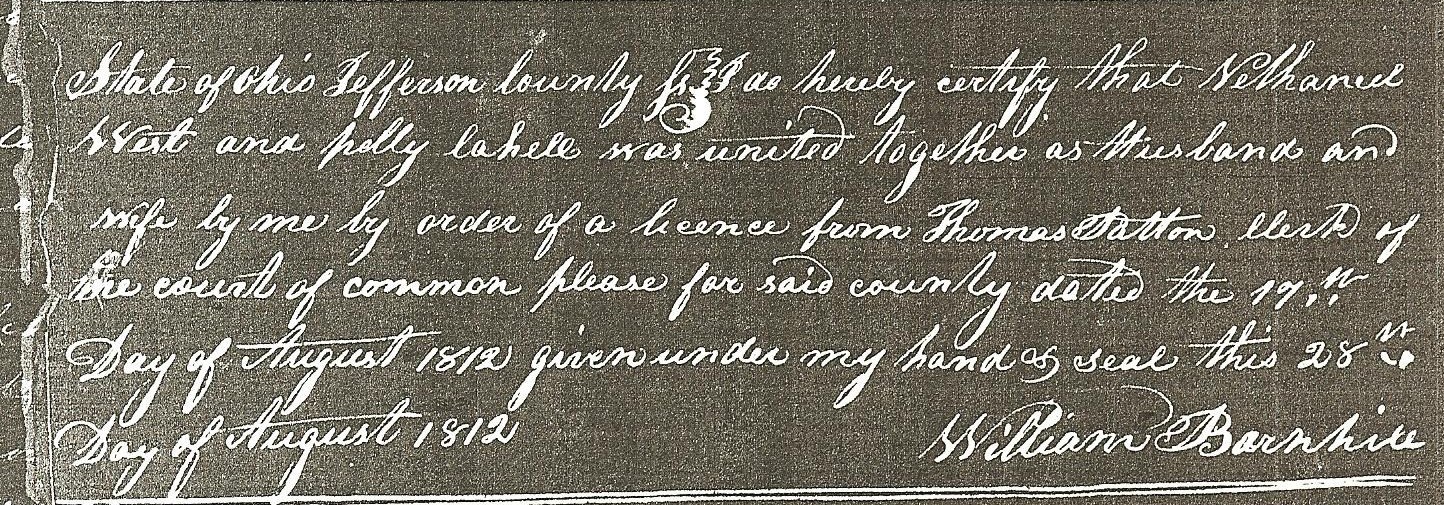 State of Ohio Jefferson County ss I do hereby certify that Nethaneel
West and polly Cahell was united together as Husband and
wife by me by order of a licence from Thomas Patton Clerk of
the court of common please for said county dated the 17th
Day of August 1812 given under my hand & seal this 28th
Day of August 1812 William Barnhill